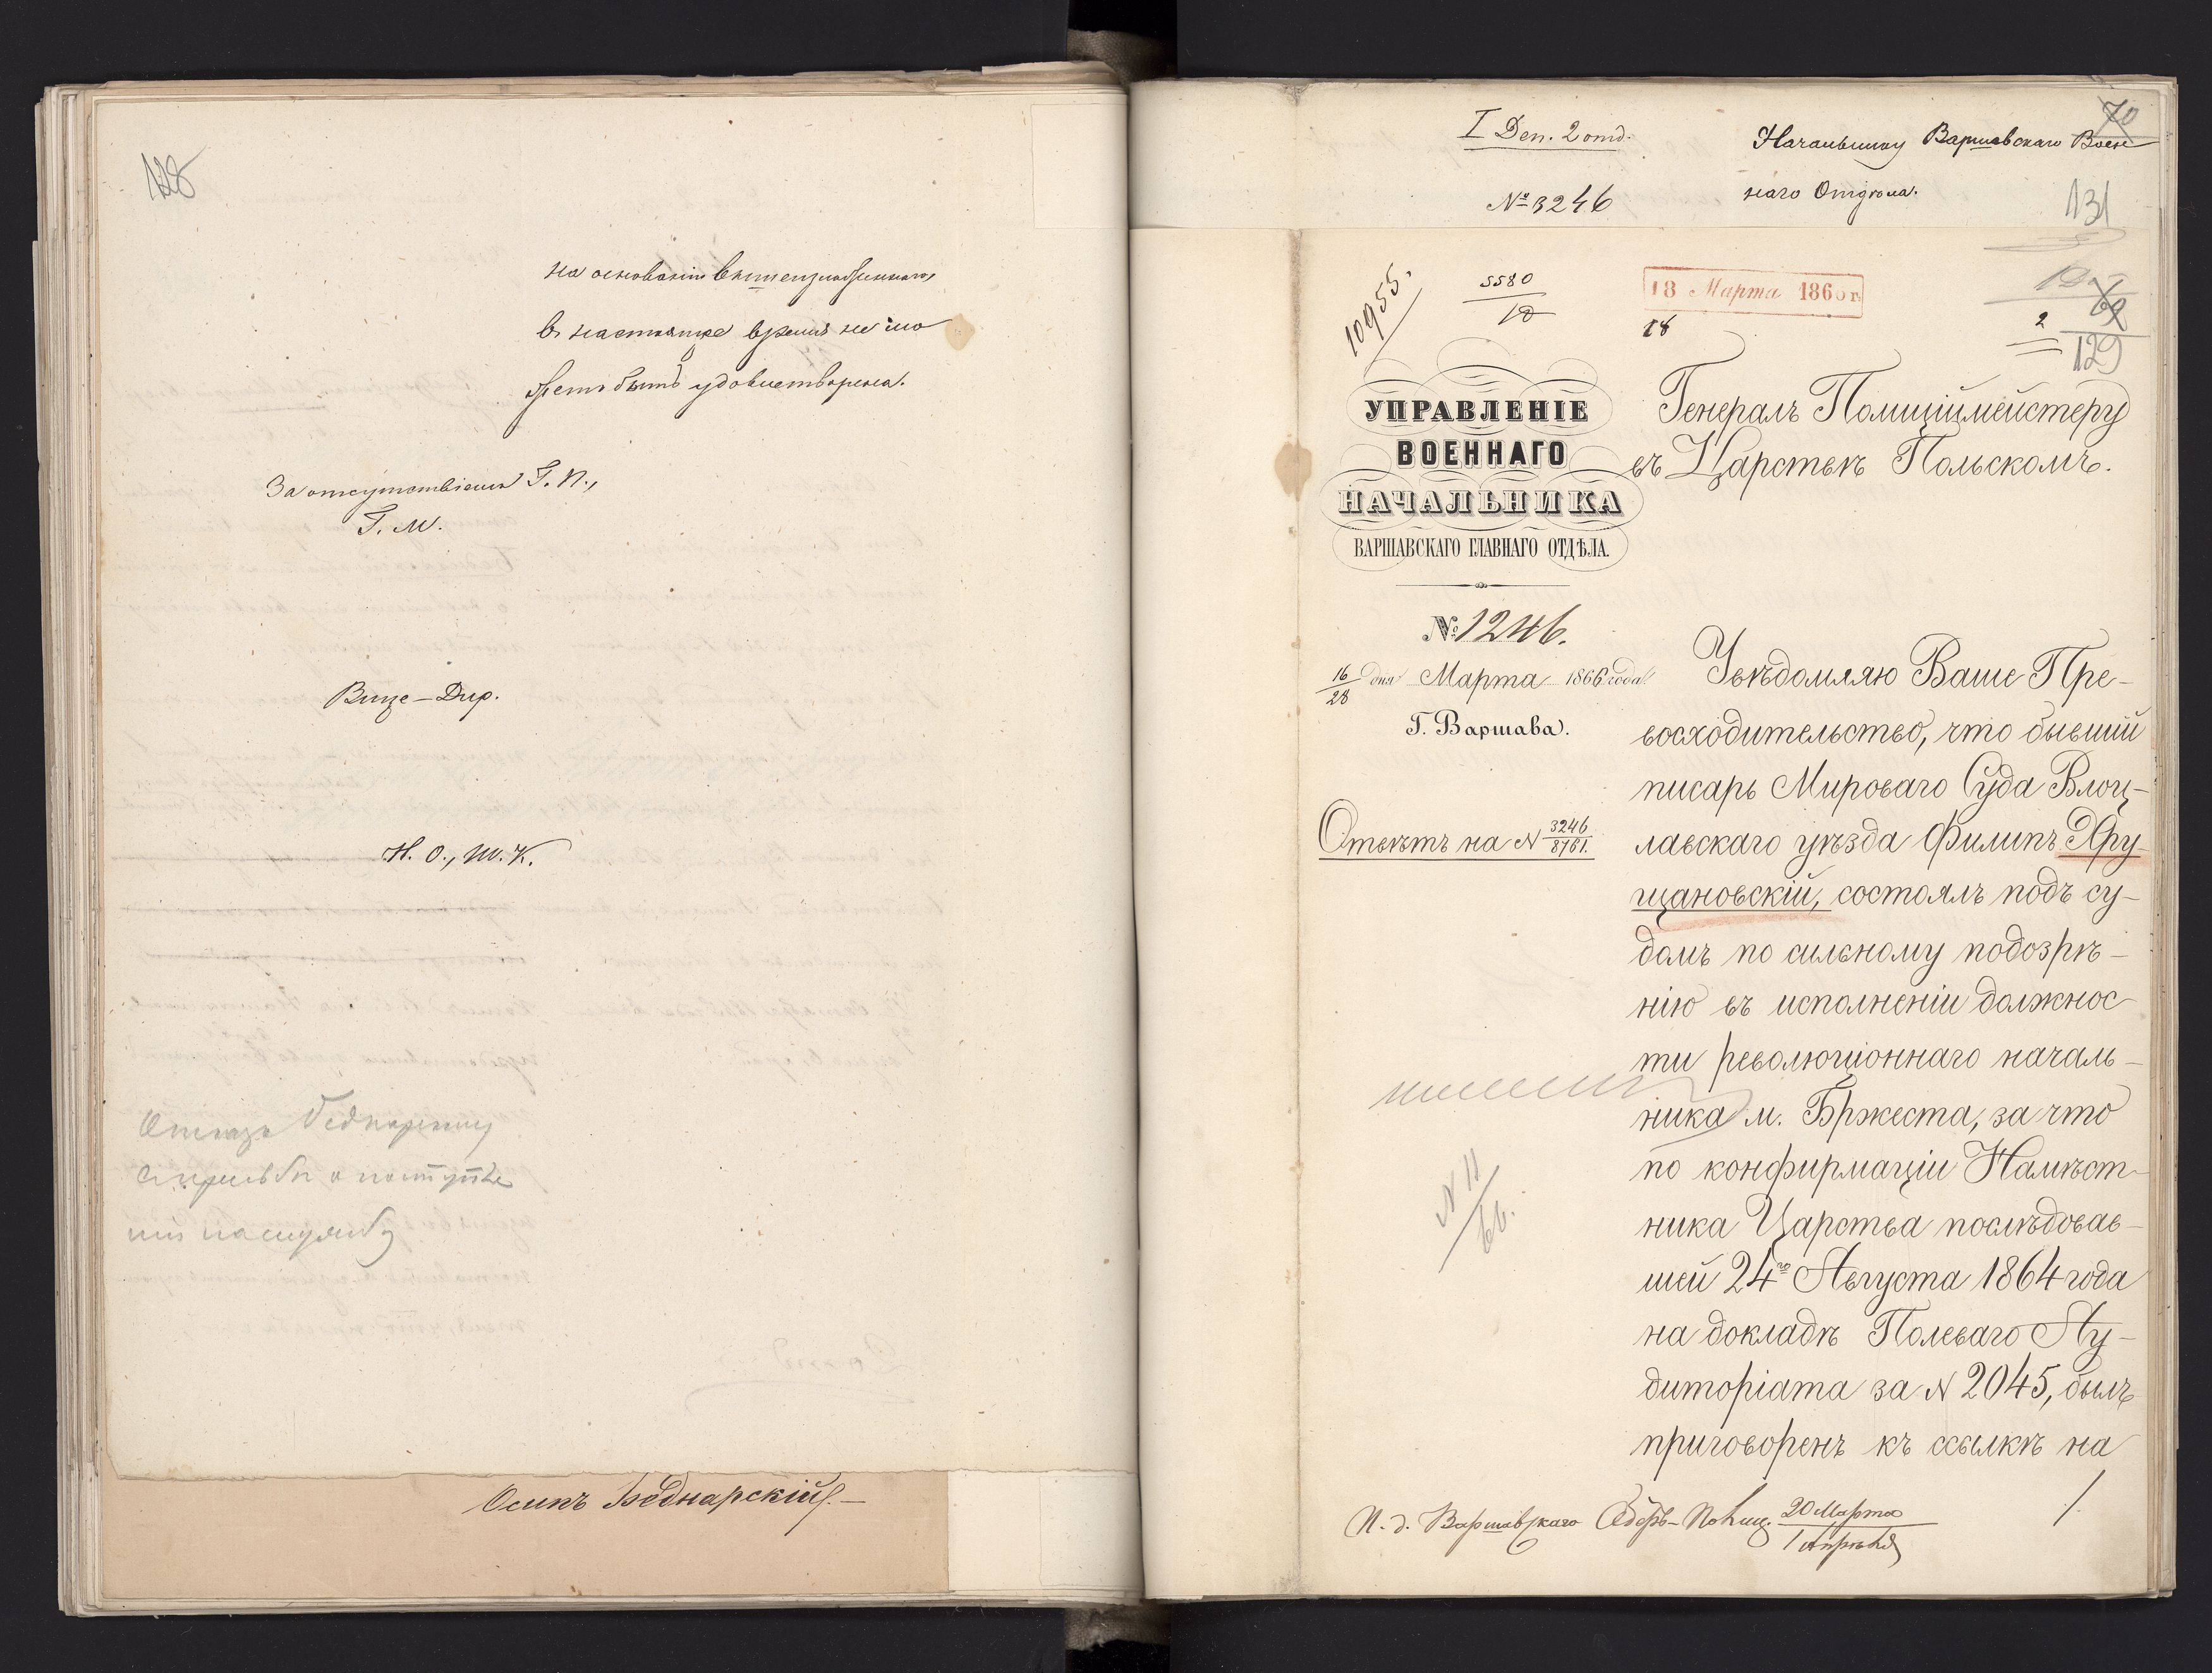 128
на основаніи вышеизложеннаго
в настоящее время не мо
жетъ быть удовлетворена.
За отсутствіемъ Г. П.,
Г. М.
Вице-Дир.
Н. О., Ш. К.
Отказъ Беднарскому
о поступле
ніи на службу
Осипъ Беднарскій.—
I Деп. 2 отд.
№ 3246
Начальнику Варшавскаго Воен
наго Отдѣла.
70
131
10955.
5580
18 Марта 1866 г.
18
2
129
УПРАВЛЕНІЕ
ВОЕННАГО
НАЧАЛЬНИКА
ВАРШАВСКАГО ГЛАВНАГО ОТДѢЛА.
№ 1246.
16/28 дня Марта 1866 года.
Г. Варшава.
Отвѣтъ на № 3246/8761.
Генералъ Полиціймейстеру
въ Царствѣ Польскомъ.
Увѣдомляю Ваше Пре-
восходительство, что бывшій
писарь Мироваго Суда Влоц-
лавскаго уѣзда Филипъ Хру-
щановскій, состоялъ подъ су-
домъ по сильному подозрѣ-
нію въ исполненіи должнос-
ти революціоннаго началь-
ника м. Бржеста, за что
по конфирмаціи Намѣст-
ника Царства послѣдовав-
шей 24го Августа 1864 года
на докладѣ Полеваго Ау-
диторіата за № 2045, былъ
приговоренъ къ ссылкѣ на
N 11/66.
И. д. Варшавскаго Оберъ-Полиц. 20 Марта
1 Апрѣля
1.